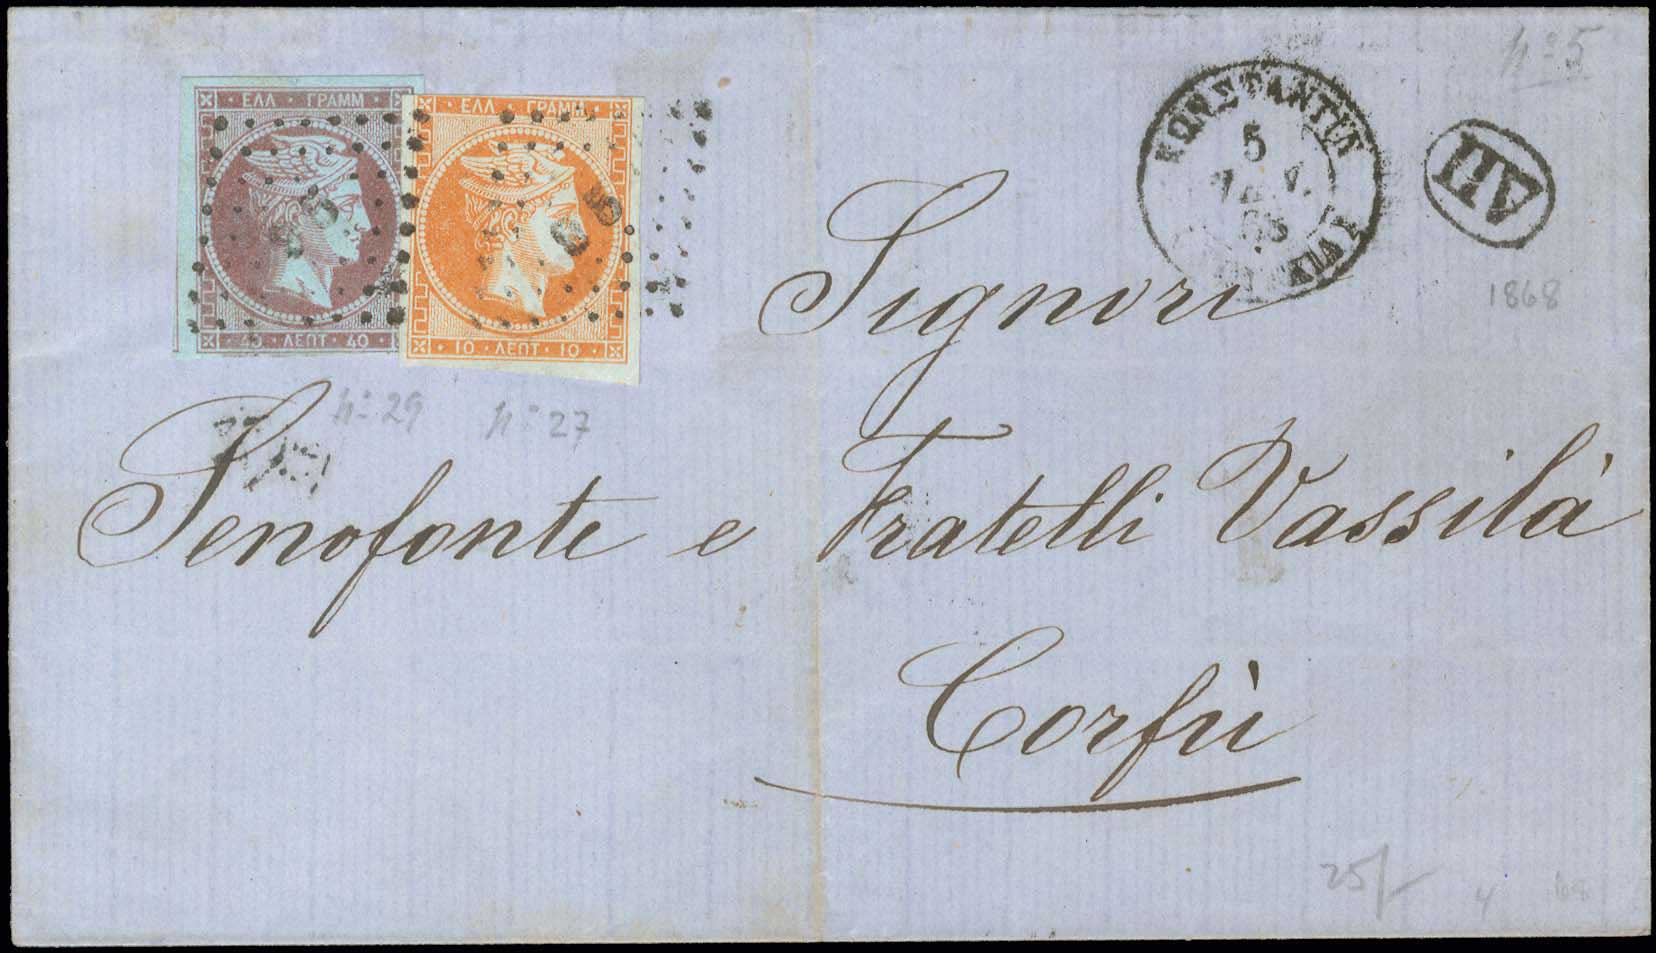 n: 5
ΕΛΛ · ΓΡΑΜΜ
40 · ΛΕΠΤ · 40
ΕΛΛ · ΓΡΑΜΜ
10 · ΛΕΠΤ · 10
5
ΑΠ
1868
n: 29
n: 27
Signori
Senofonte e Fratelli Vassilà
Corfù
25/-